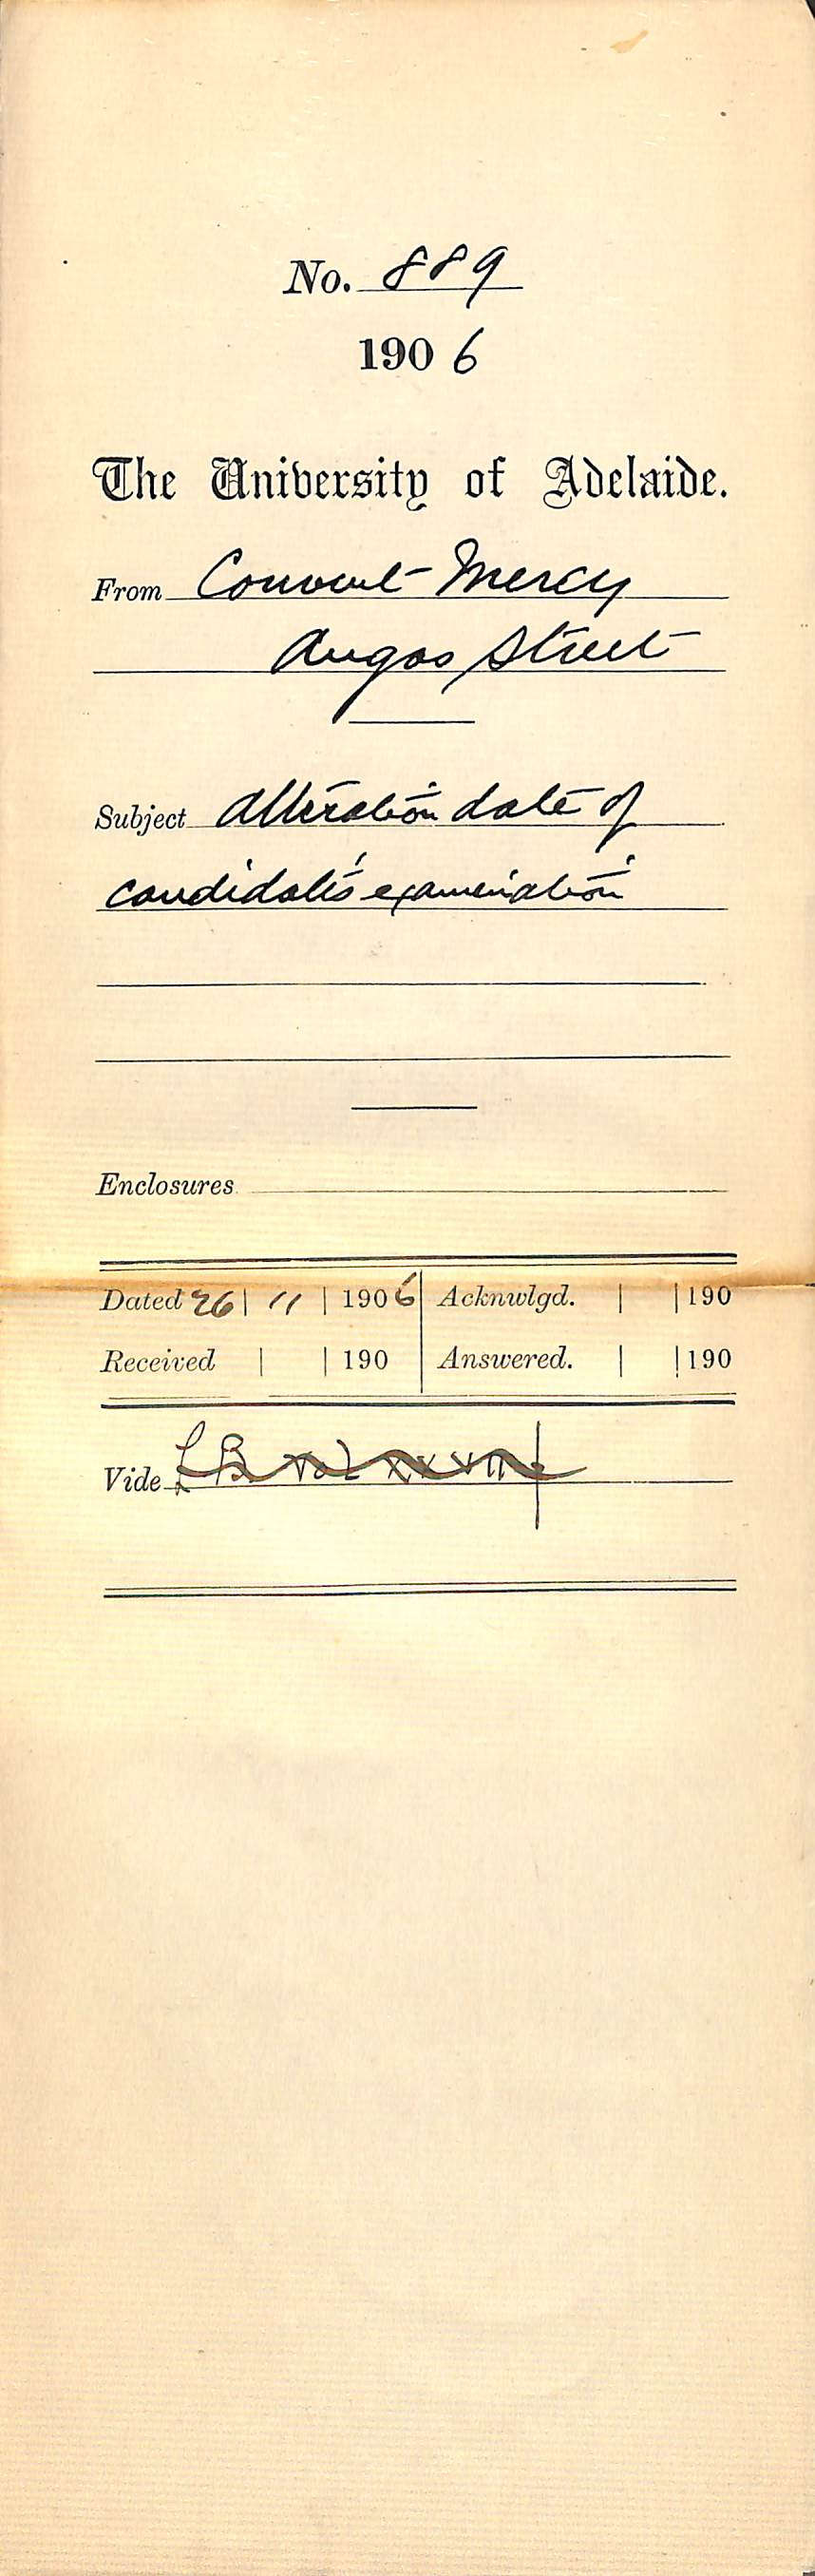 No. 889
1906
The University of Adelaide.
From Convent Mercy
Angas Street
Subject Alteration date of
candidate's examination
Enclosures
Dated 26 | 11 | 1906 Acknwlgd. | | 190
Received | | 190 Answered. | | 190
Vide L B vol